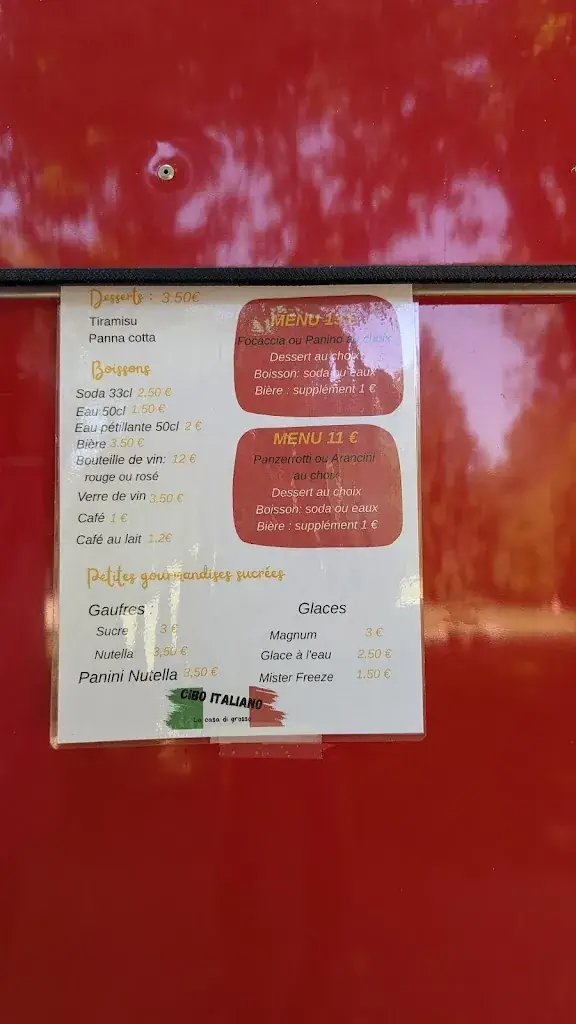 Desserts : 3.50€
Tiramisu
Panna cotta
Boissons
Soda 33cl 2,50 €
Eau 50cl 1,50 €
Eau pétillante 50cl 2 €
Bière 3.50 €
Bouteille de vin: 12 €
rouge ou rosé
Verre de vin 3.50 €
Café 1 €
Café au lait 1.2€
MENU
Focaccia ou Panino au choix
Dessert au choix
Boisson: soda ou eaux
Bière : supplément 1 €
MENU 11 €
Panzerrotti ou Arancini
au choix
Dessert au choix
Boisson: soda ou eaux
Bière : supplément 1 €
Petites gourmandises sucrées
Gaufres :
Sucre 3 €
Nutella 3,50 €
Panini Nutella 3,50 €
Glaces
Magnum 3 €
Glace à l'eau 2.50 €
Mister Freeze 1.50 €
CIBO ITALIANO
La casa di